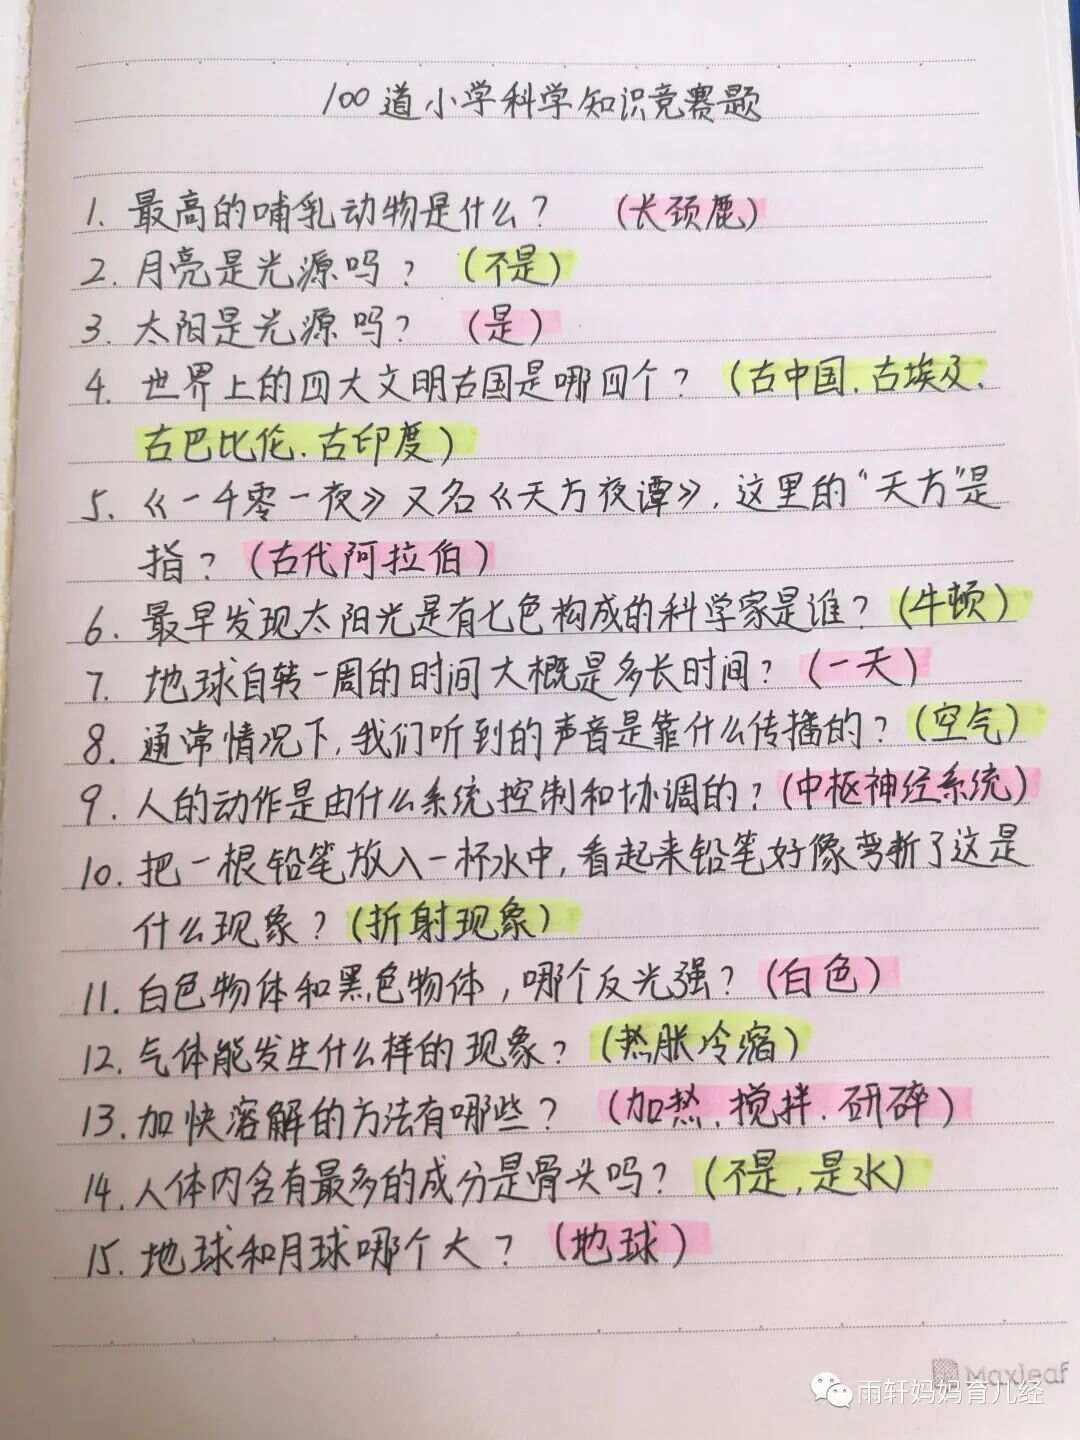 100道小学科学知识竞赛题
1. 最高的哺乳动物是什么? (长颈鹿)
2. 月亮是光源吗? (不是)
3. 太阳是光源吗? (是)
4. 世界上的四大文明古国是哪四个? (古中国.古埃及.
古巴比伦.古印度)
5. 《一千零一夜》又名《天方夜谭》,这里的"天方"是
指? (古代阿拉伯)
6. 最早发现太阳光是有七色构成的科学家是谁? (牛顿)
7. 地球自转一周的时间大概是多长时间? (一天)
8. 通常情况下,我们听到的声音是靠什么传播的? (空气)
9. 人的动作是由什么系统控制和协调的? (中枢神经系统)
10. 把一根铅笔放入一杯水中,看起来铅笔好像弯折了这是
什么现象? (折射现象)
11. 白色物体和黑色物体,哪个反光强? (白色)
12. 气体能发生什么样的现象? (热胀冷缩)
13. 加快溶解的方法有哪些? (加热.搅拌.研碎)
14. 人体内含有最多的成分是骨头吗? (不是,是水)
15. 地球和月球哪个大? (地球)
Maxleaf
雨轩妈妈育儿经